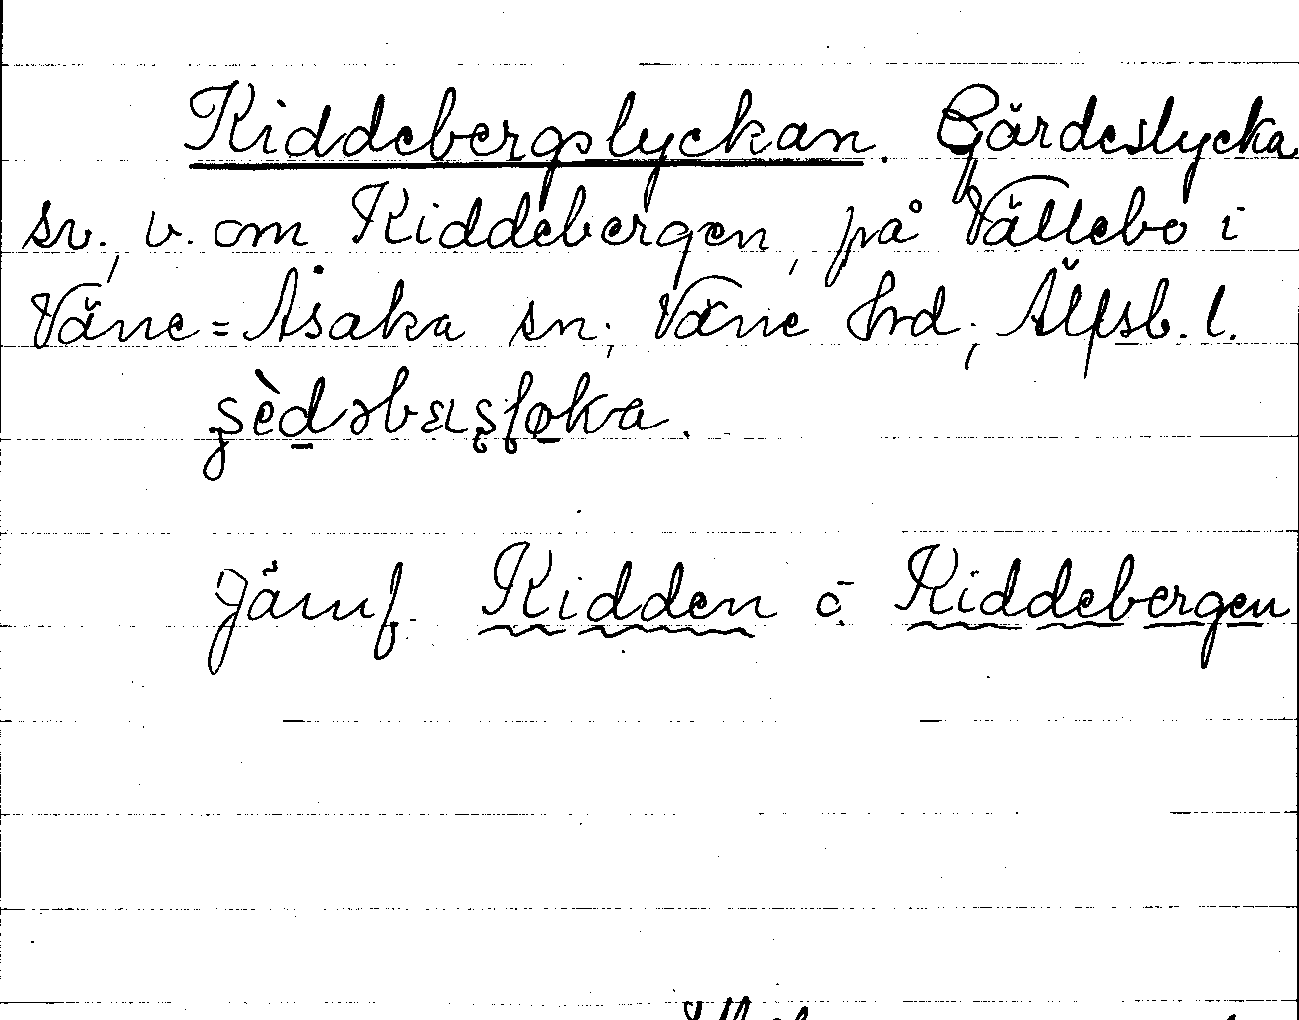 Kiddebergslyckan. Gärdeslycka
sv., v. om Kiddebergen, på Vällebo i
Väne=Åsaka sn; Väne hrd; Älfsb. l.
Jämf. Kidden o Kiddebergen